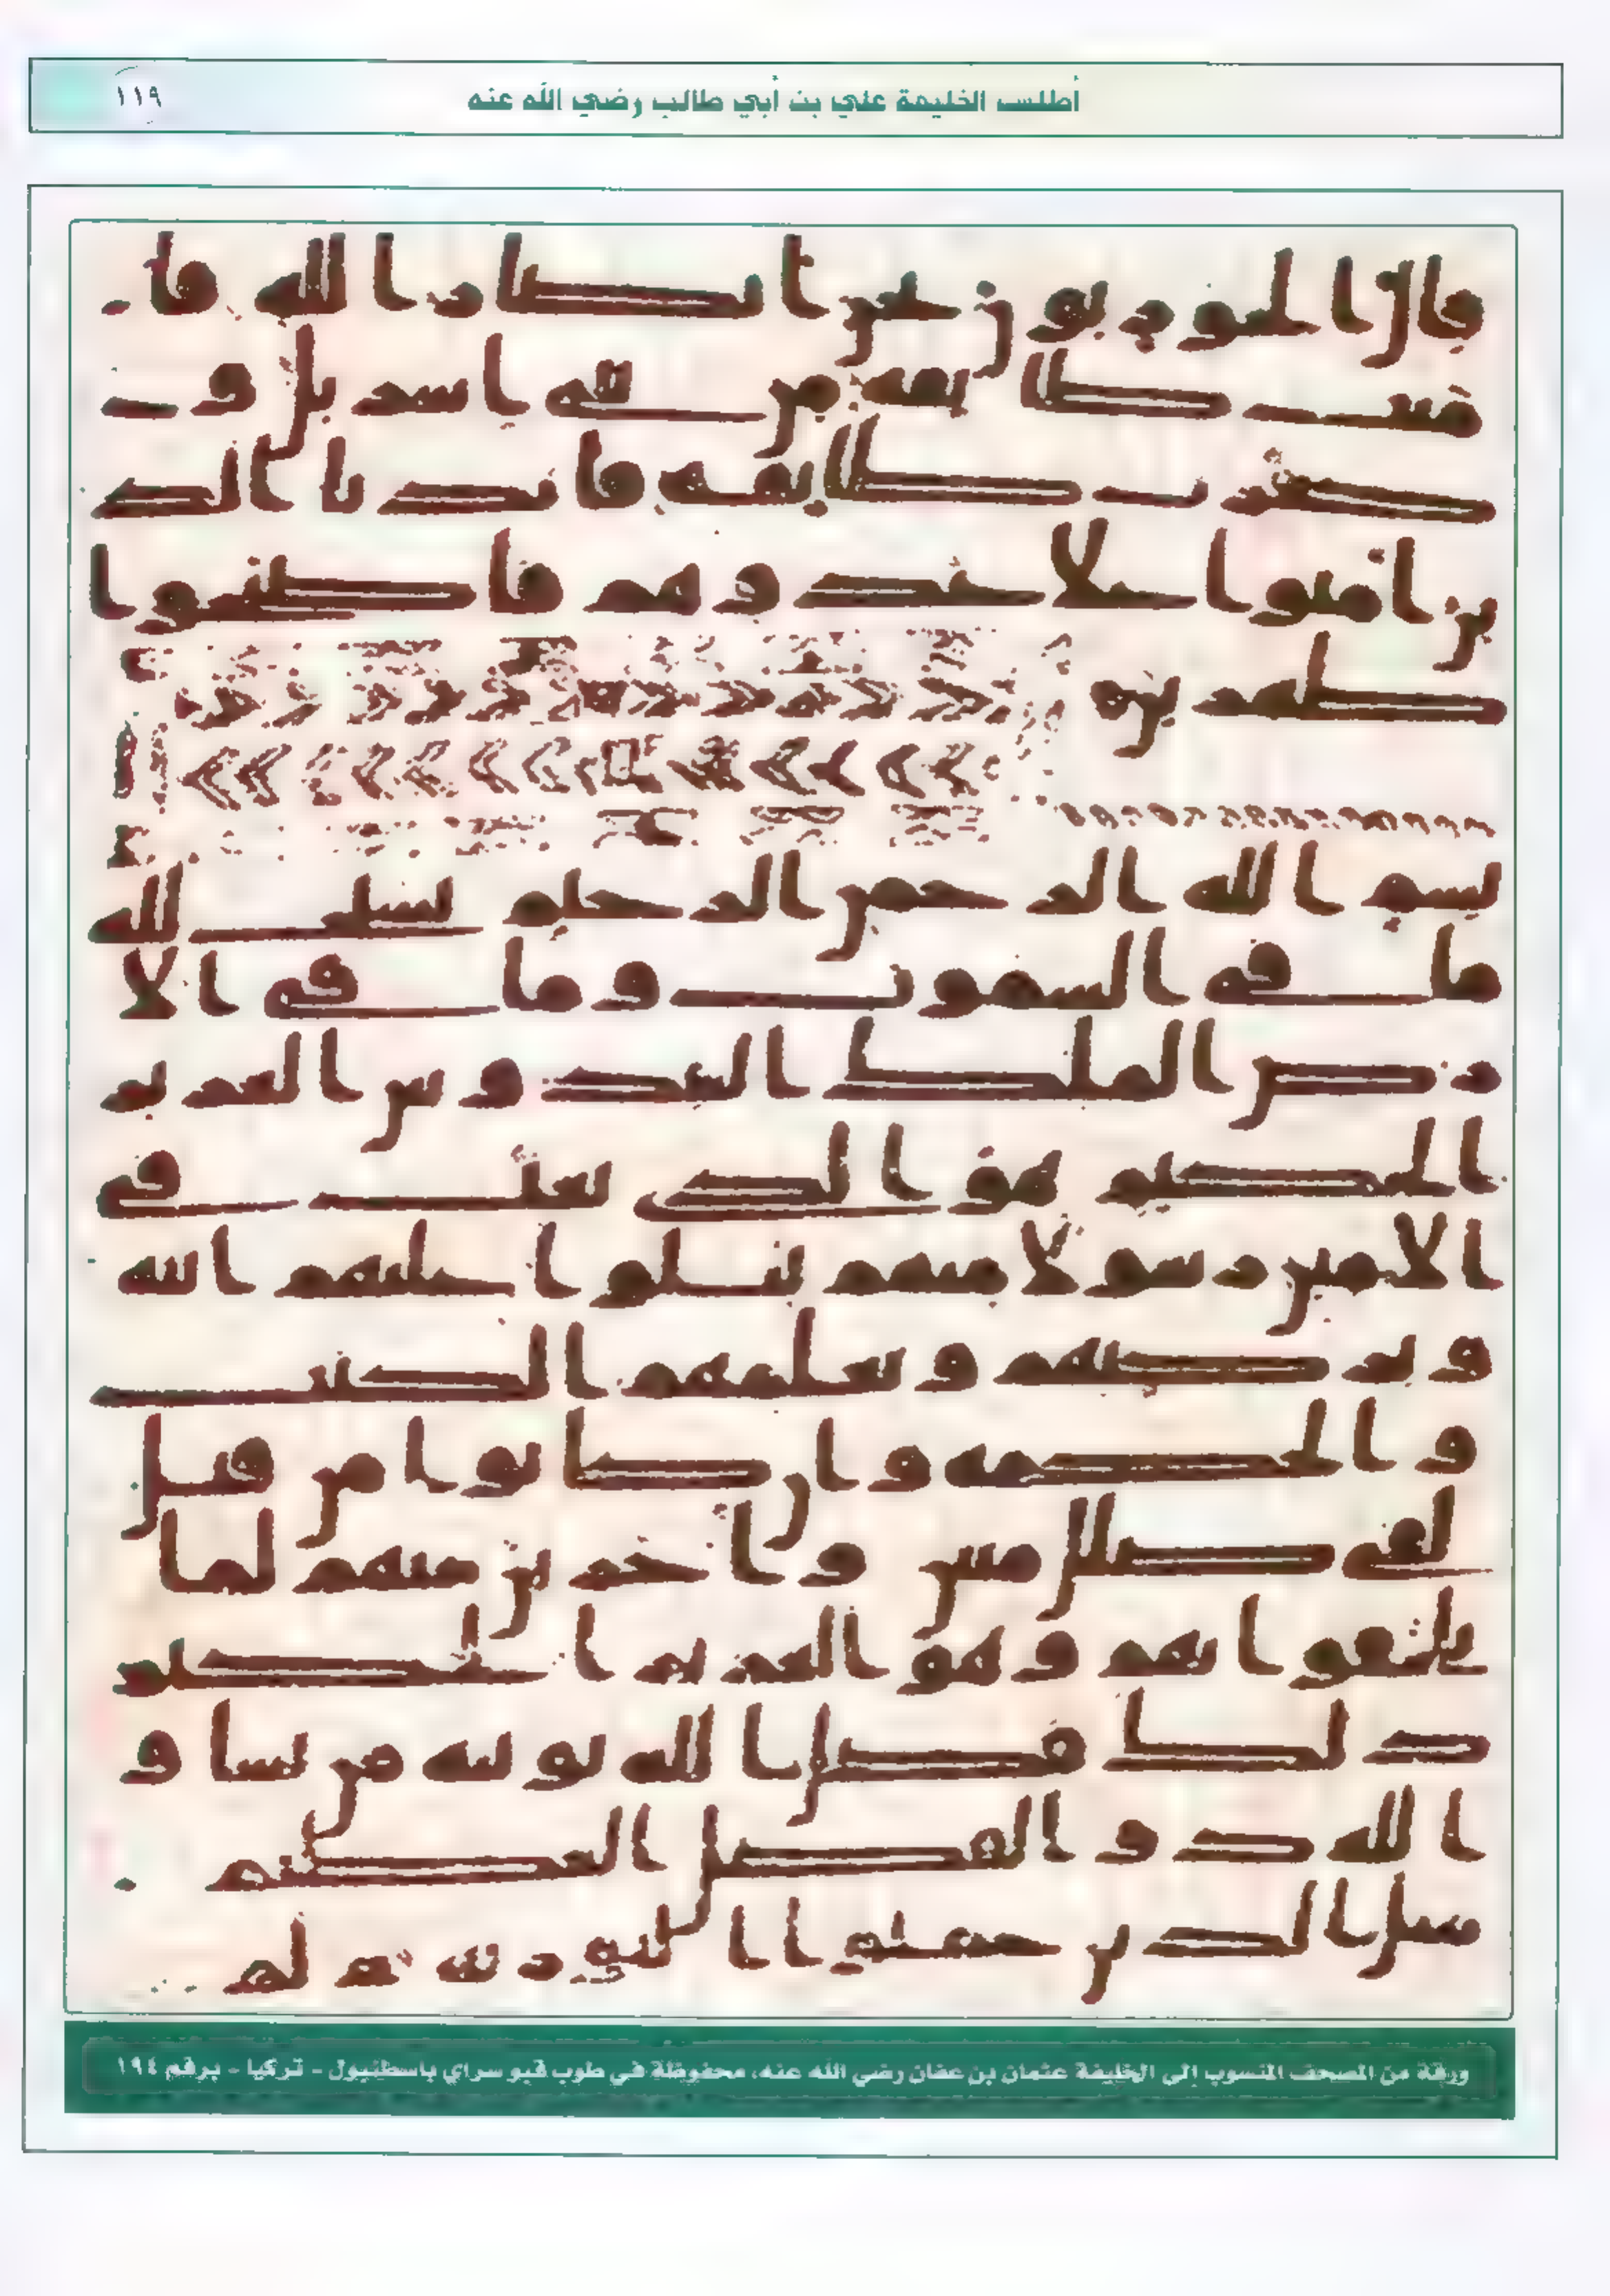 أطلس الخليفة علي بن أبي طالب رضي الله عنه
١١٩
قال الحواريون نحن انصار الله فا
منت طايفة من بني اسرايل و
كفرت طايفة فايدنا الذ
ين امنوا على عدوهم فاصبحوا
ظهرين
بسم الله الرحمن الرحيم يسبح لله
ما في السموت وما في الا
رض الملك القدوس العزيز
الحكيم هو الذي بعث في
الامين رسولا منهم يتلوا عليهم ايته
ويزكيهم ويعلمهم الكتب
والحكمة وان كانوا من قبل
لفي ضلل مبين واخرين منهم لما
يلحقوا بهم وهو العزيز الحكيم
ذلك فضل الله يوتيه من يشا و
الله ذو الفضل العظيم
مثل الذين حملوا التورية ثم لم
ورقة من المصحف المنسوب إلى الخليفة عثمان بن عفان رضي الله عنه، محفوظة في طوب قبو سراي باسطنبول - تركيا - برقم ١٩٤